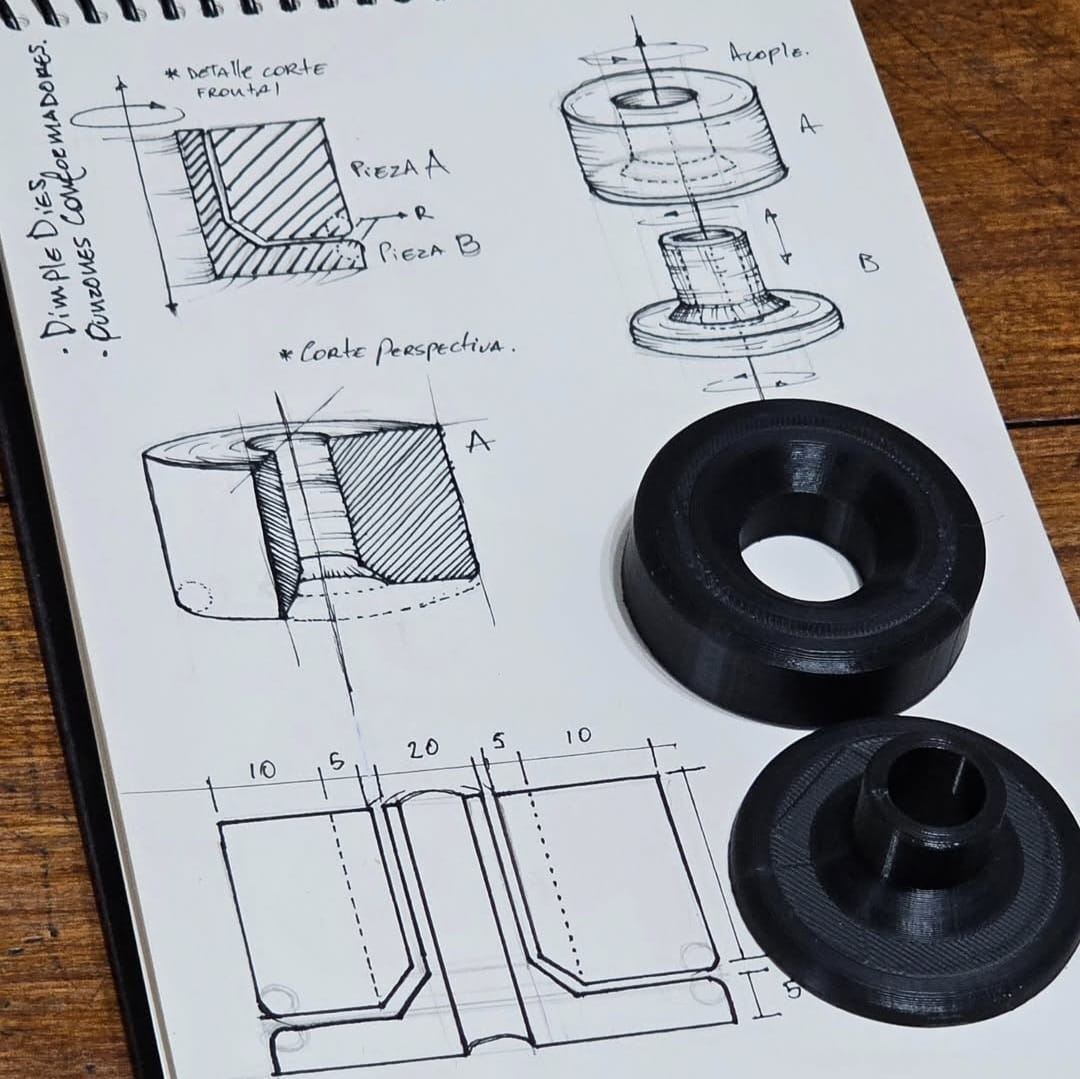 · Dimple Dies.
· Punzones Conformadores.
* Detalle corte
frontal
Pieza A
R
Pieza B
Acople.
A
A
B
* Corte Perspectiva.
A
10 5 20 5 10
5